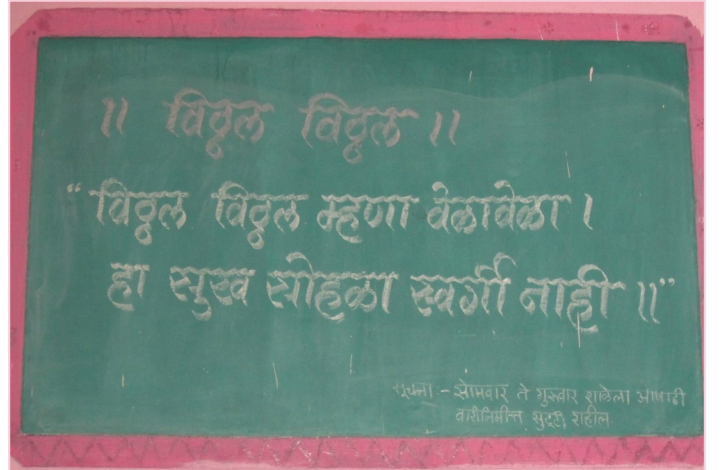 ॥ विठ्ठल विठ्ठल ॥
“विठ्ठल विठ्ठल म्हणा वेळावेळा ।
हा सुख सोहळा स्वर्गी नाही ॥”
सूचना - सोमवार ते गुरुवार शाळेला आषाढी
वारीनिमीत्त सुट्टी राहील